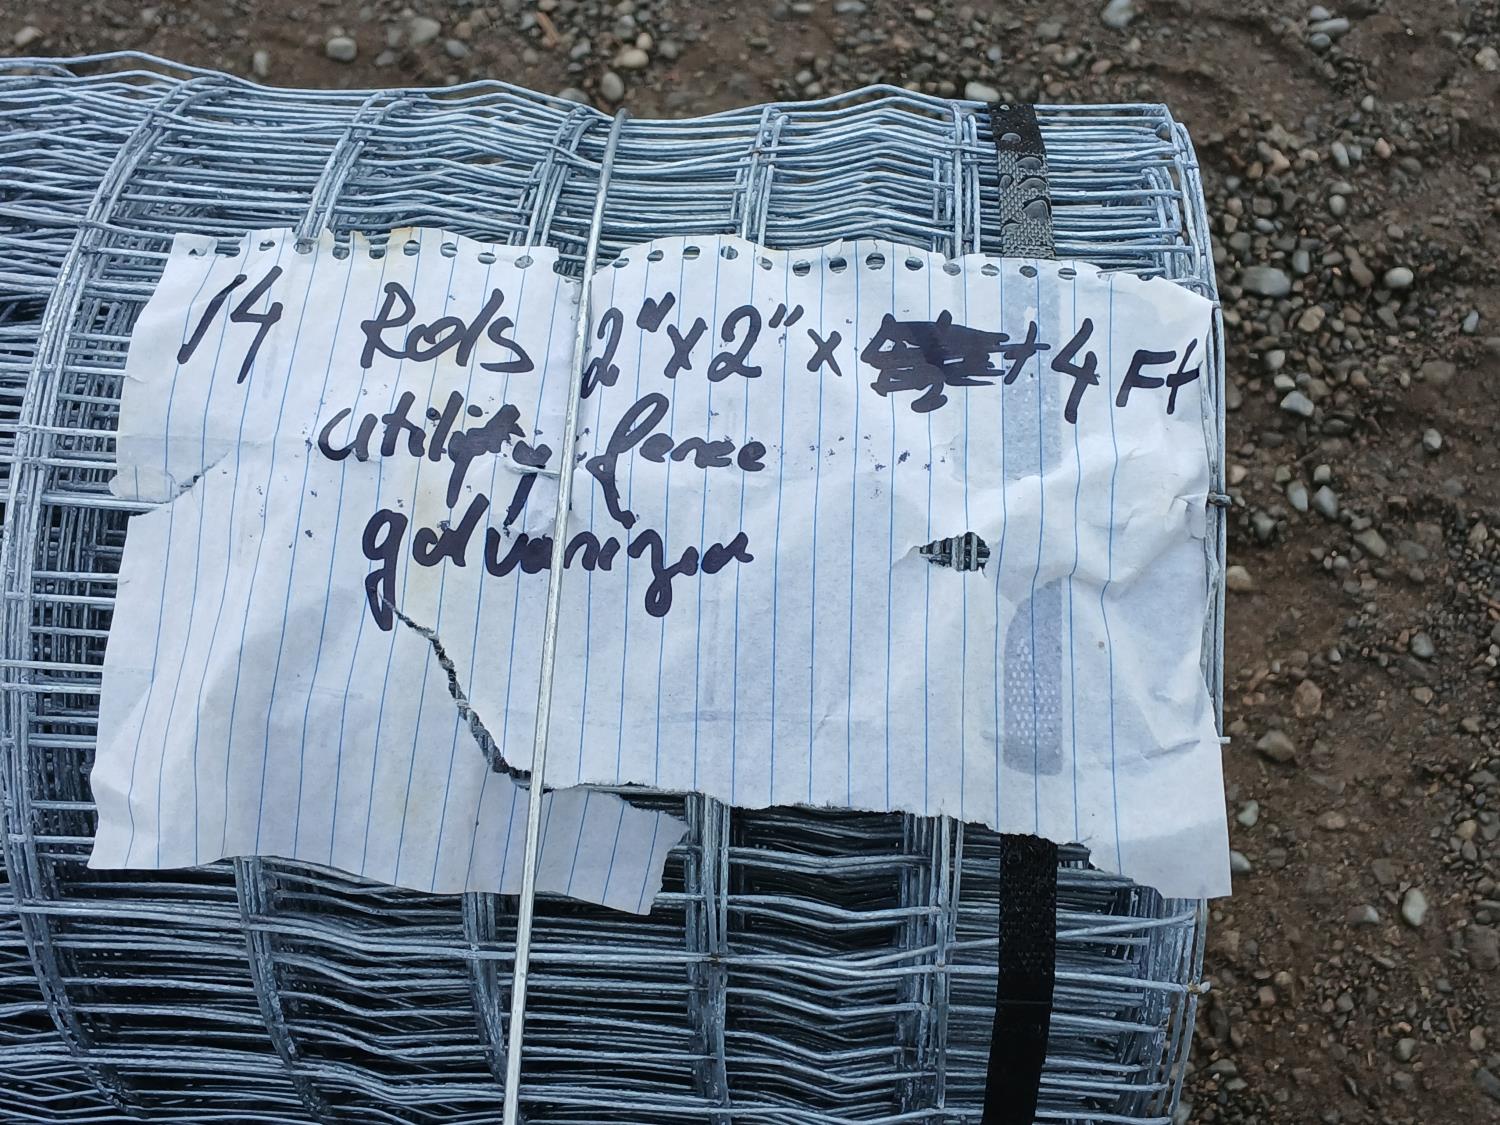 14 Rods 2"x2"x 4 Ft
utility fence
galvanized